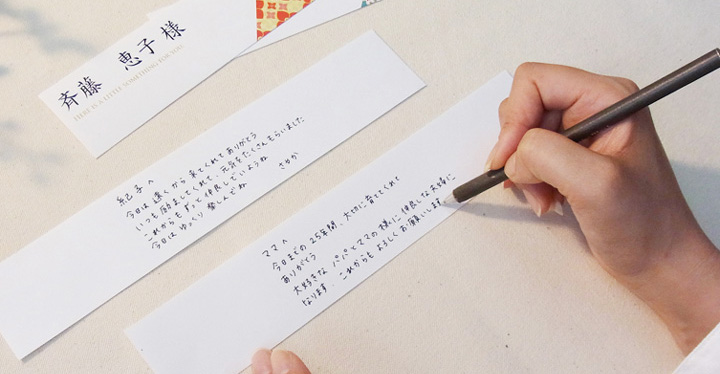 斉藤 恵子 様
HERE IS A LITTLE SOMETHING FOR YOU
紀子へ
今日は遠くから来てくれてありがとう
いつも励ましてくれて、元気をたくさんもらいました
これからもずっと仲良しでいようね
今日はゆっくり楽しんでね
さやか
ママへ
今日までの25年間、大切に育ててくれて
ありがとう
大好きなパパとママの様に仲良しな夫婦に
なります。これからもよろしくお願いします